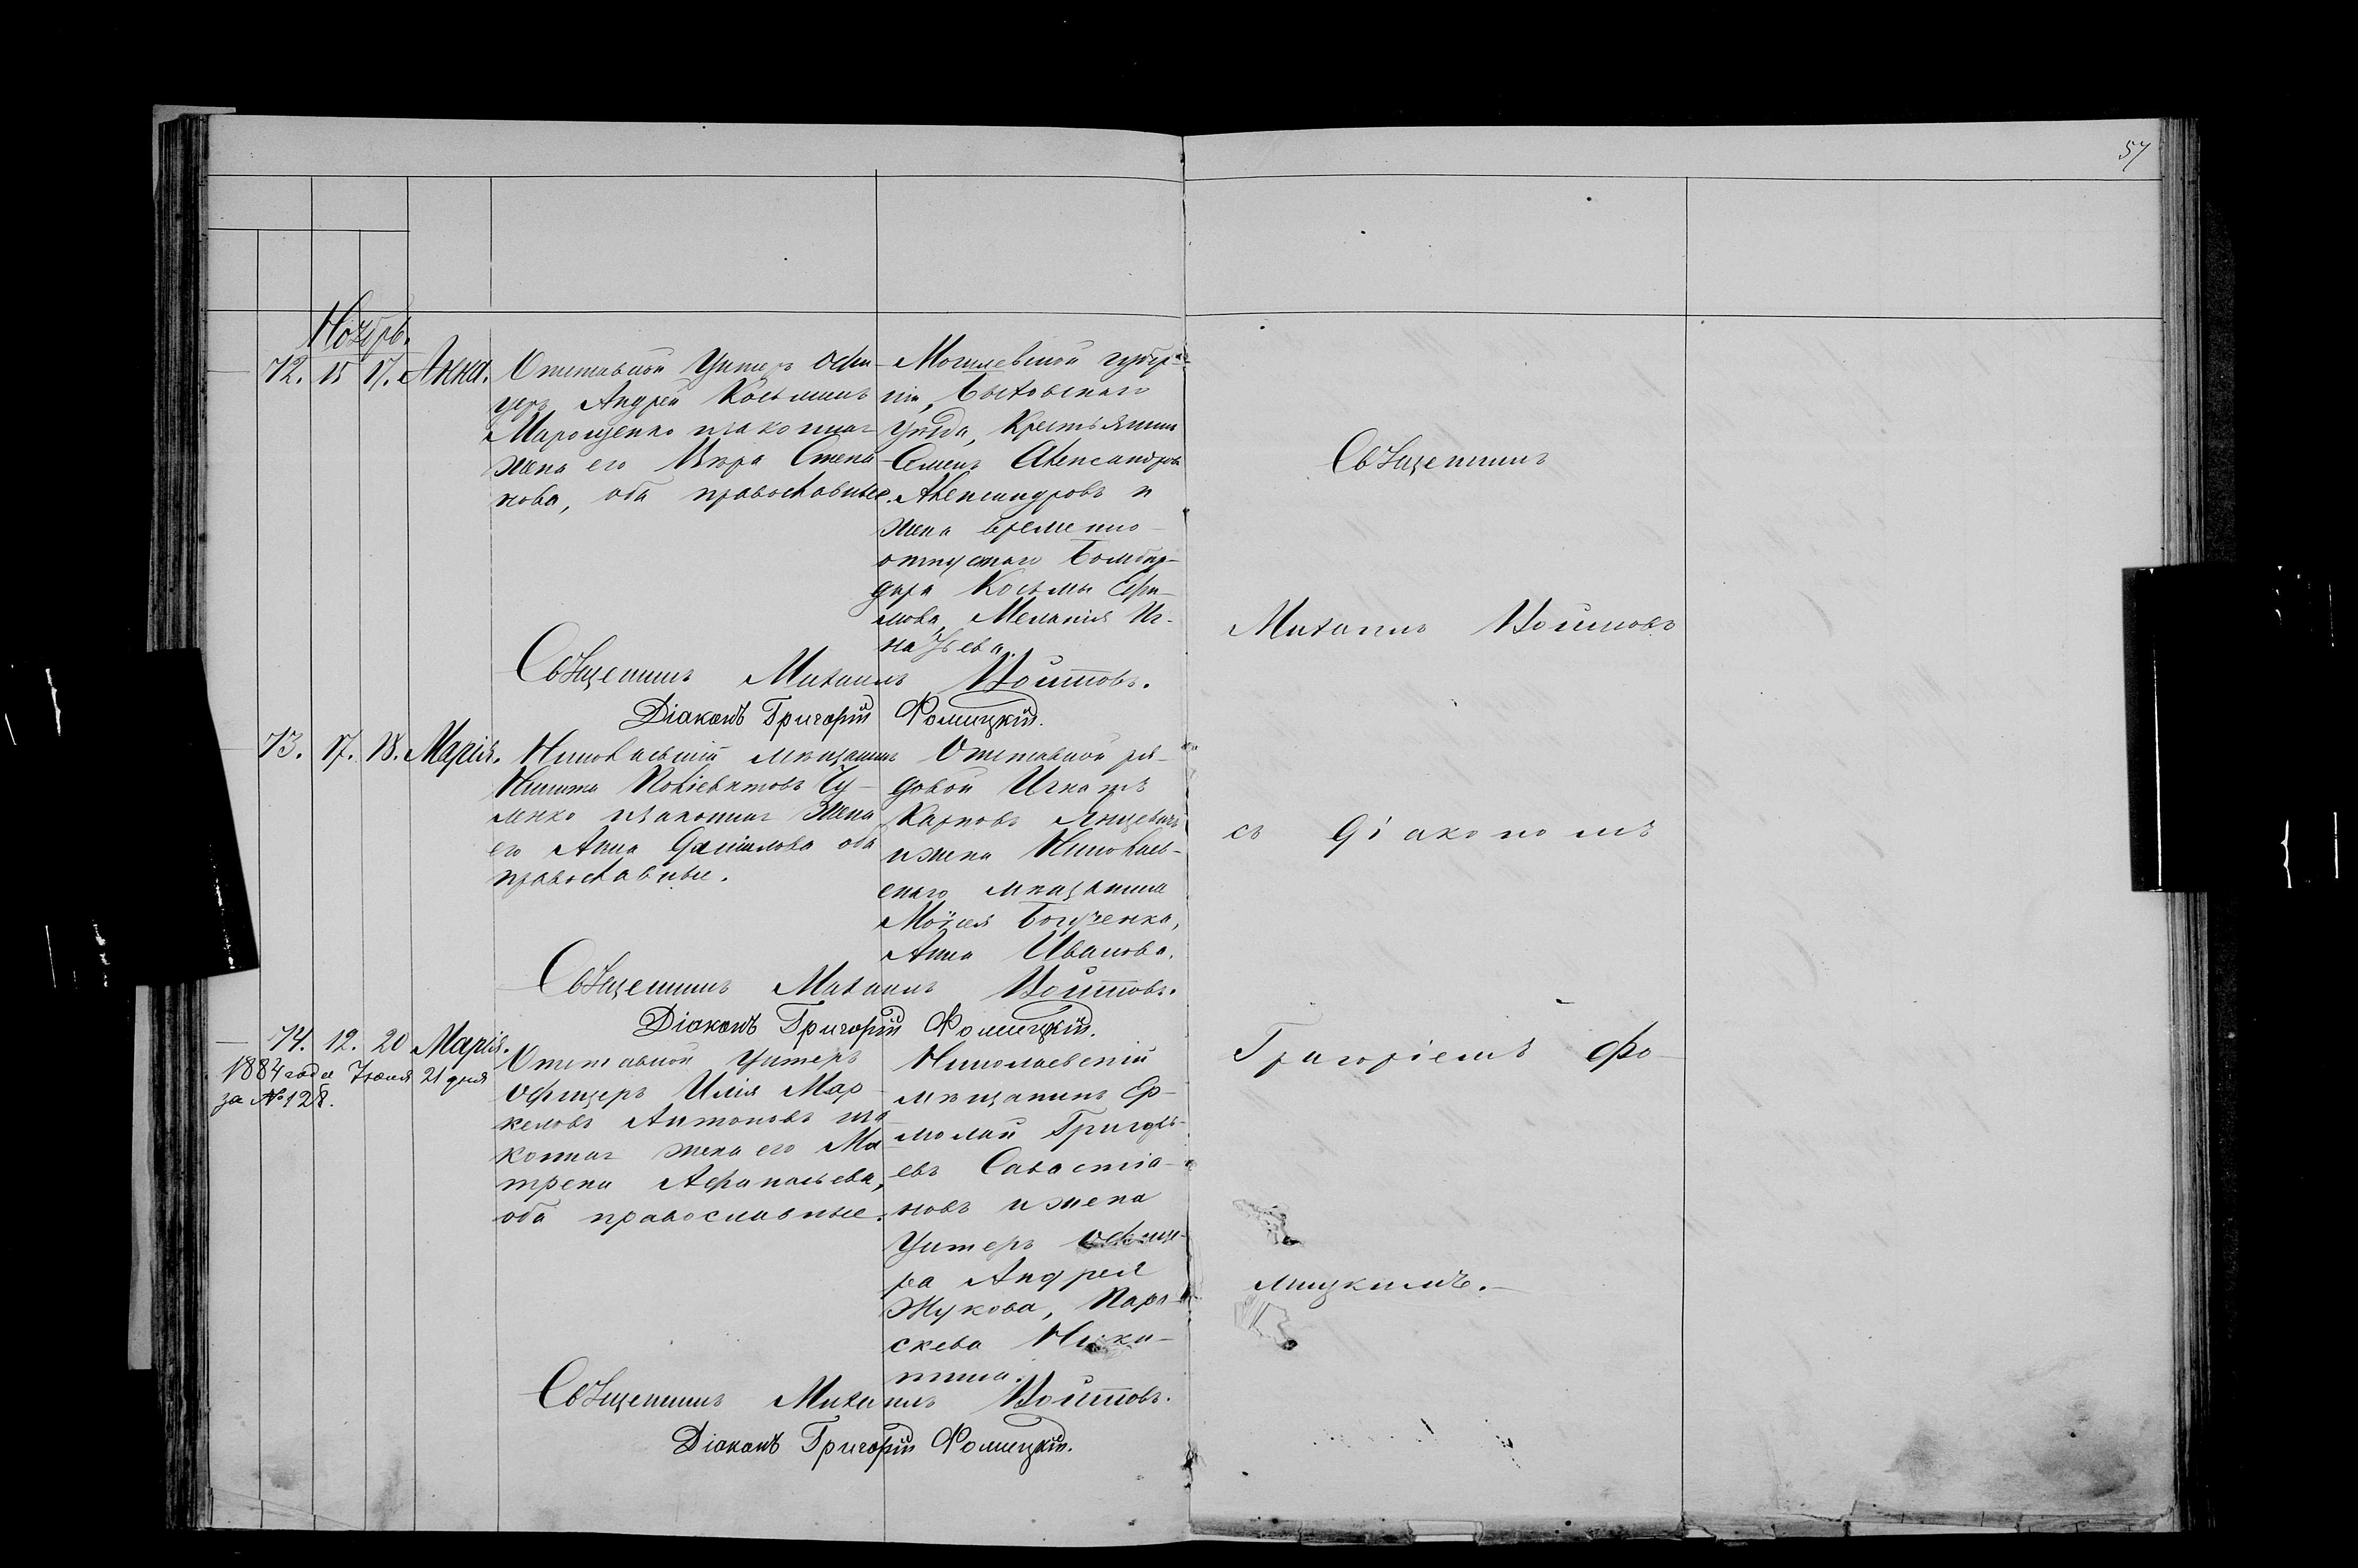 57
Ноябрь.
72. 15 17. Анна. Отставной Унтеръ Офи-
церъ Андрей Косьминъ
Марощенко и законная
жена его Вѣра Степа-
нова, оба православные.
Могилевской губер-
ніи, Быховскаго
уѣзда, Крестьянинъ
Семенъ Александровъ
Александровъ и
жена временно-
отпускнаго Бомбар-
дира Косьмы Ефи-
мова Меланія Иг-
натьева.
Священникъ Михаилъ Войтовъ.
Діаконъ Григорій Фомицкій.
73. 17. 18. Марія. Николаевскій мѣщанинъ
Никита Чу-
менко и законная жена
его Анна Даниилова оба
православные.
Отставной ря-
довой Игнатъ
Карповъ Янцевичъ
и жена Николаев-
скаго мѣщанина
Моѵсея Богученка,
Анна Иванова.
Священникъ Михаилъ Войтовъ.
Діаконъ Григорій Фомицкій.
74. 12. 20 Марія.
1884 года Іюня 21 дня
за № 128.
Отставной Унтеръ
Офицеръ Илія Мар-
келовъ Антоновъ и за
конная жена его Ма
трена Афанасьева,
оба православные.
Николаевскій
мѣщанинъ Ер-
молай Григорь-
евъ Савастіа-
новъ и жена
Унтеръ Офице-
ра Андрея
Жукова, Пара-
скева Ники-
тина.
Священникъ Михаилъ Войтовъ.
Діаконъ Григорій Фомицкій.
Священникъ
Михаилъ Войтовъ
съ діакономъ
Григоріемъ Фо-
мицкимъ.